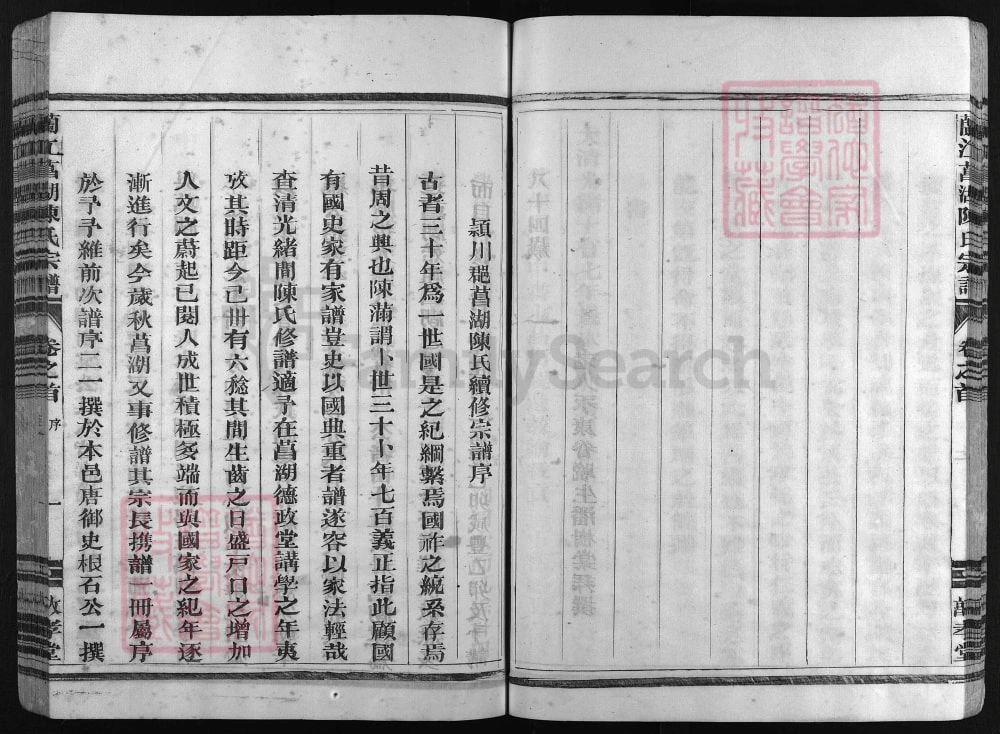 蘭江菖湖陳氏宗譜
卷之首
潁川郡菖湖陳氏續修宗譜序
古者三十年爲一世國是之紀綱繫焉國祚之統系存焉
昔周之興也陳滿謂卜世三十卜年七百義正指此顧國
有國史家有家譜豈史以國典重者譜遂容以家法輕哉
查清光緒間陳氏修譜適予在菖湖德政堂講學之年夷
攷其時距今已卌有六稔其間生齒之日盛戶口之增加
人文之蔚起已閱人成世積極多端而與國家之紀年逐
漸進行矣今歲秋菖湖又事修譜其宗長携譜一冊屬序
於予予維前次譜序二一撰於本邑唐御史根石公一撰
蘭江菖湖陳氏宗譜
卷之首
序
一
孝堂
FamilySearch